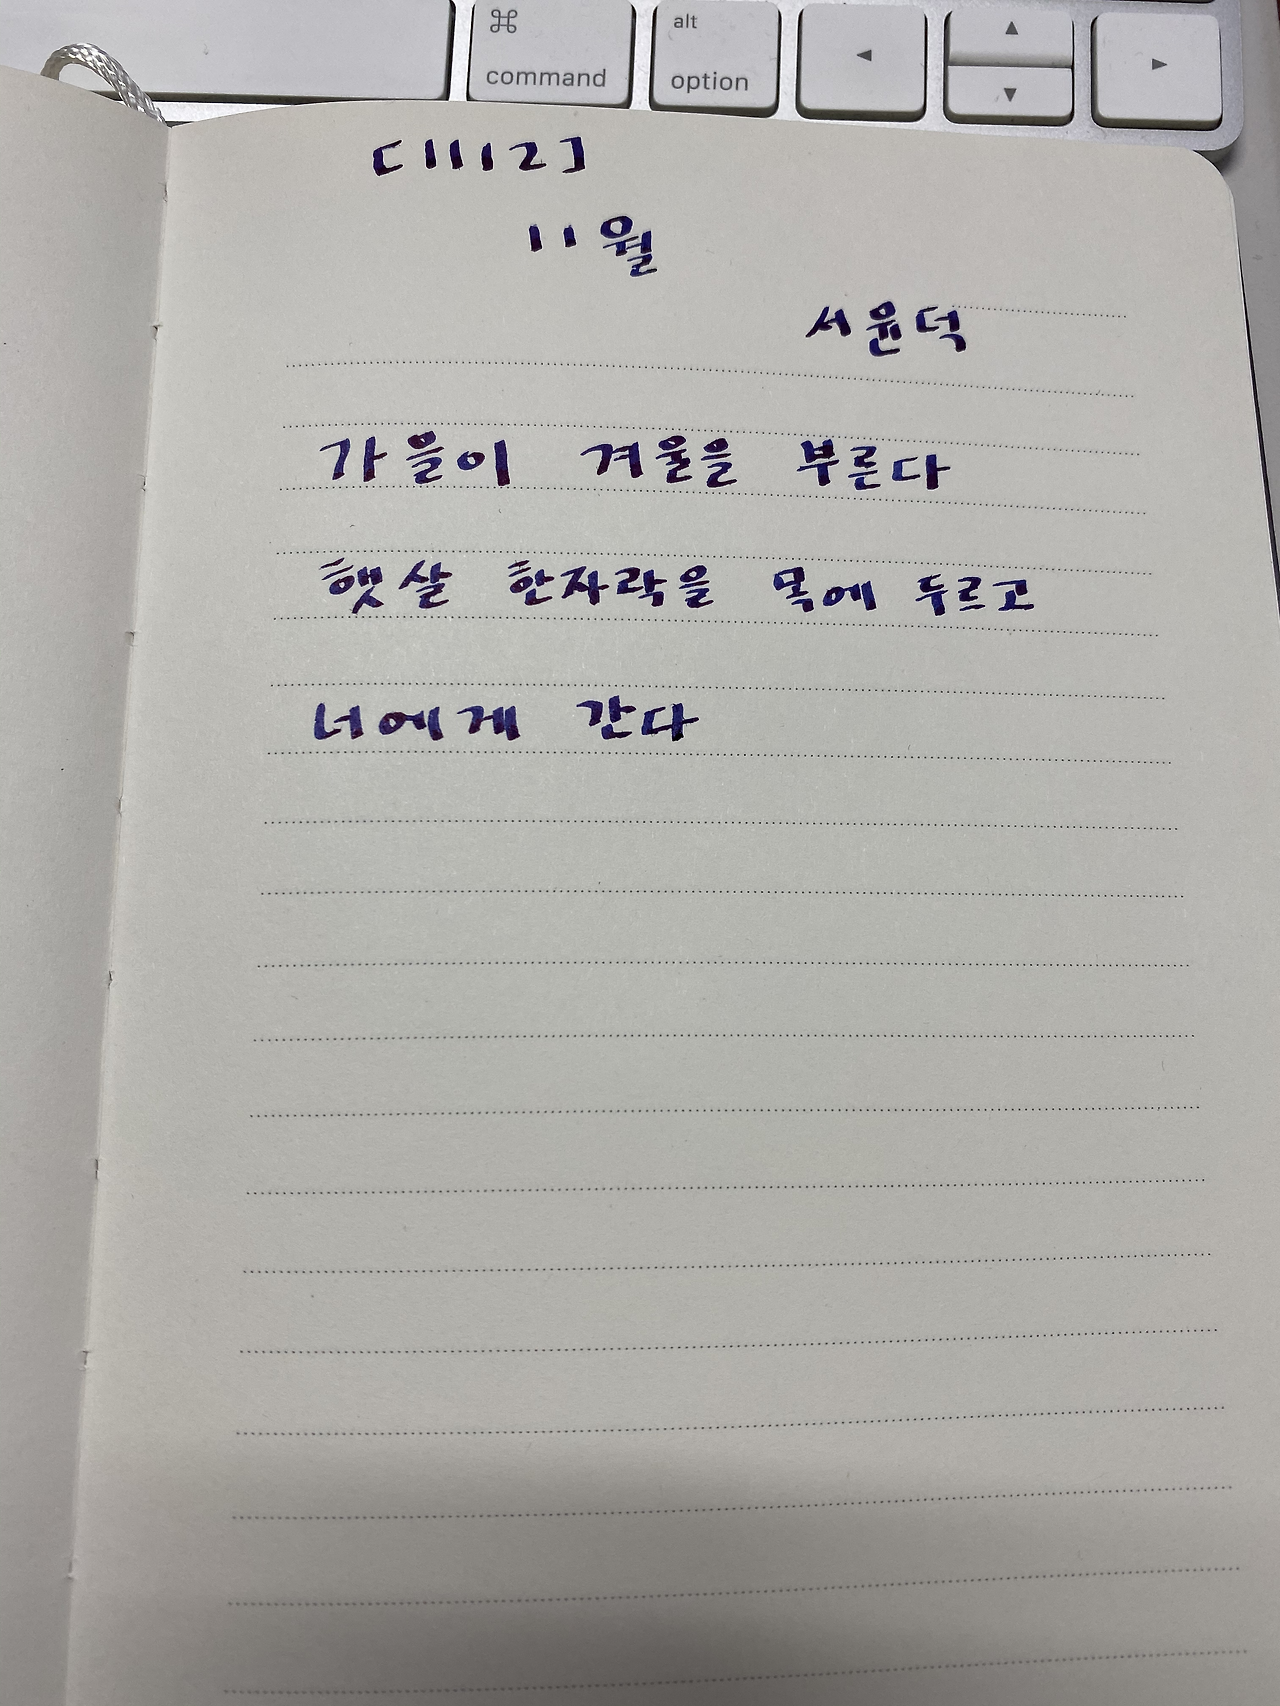 ⌘ alt
command option ◀ ▲ ▼ ▶
[1112]
11월
서윤덕
가을이 겨울을 부른다
햇살 한자락을 목에 두르고
너에게 간다